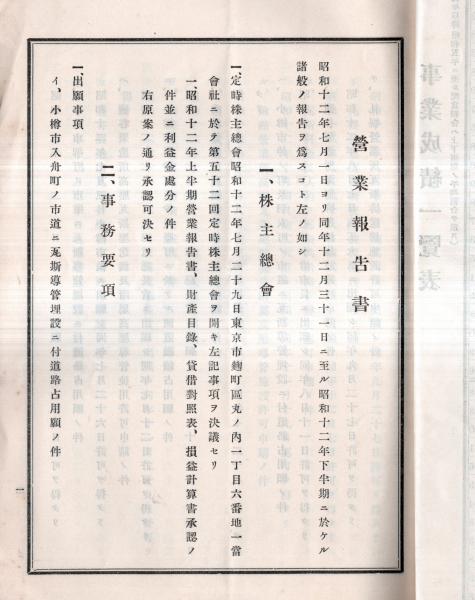 營業報告書
昭和十二年七月一日ヨリ同年十二月三十一日ニ至ル昭和十二年下半期ニ於ケル
諸般ノ報告ヲ爲スコト左ノ如シ
一、株主總會
一、定時株主總會昭和十二年七月二十九日東京市麹町區丸ノ內一丁目六番地一當
會社ニ於テ第五十二回定時株主總會ヲ開キ左記事項ヲ決議セリ
一、昭和十二年上半期營業報告書、財產目錄、貸借對照表、損益計算書承認ノ
件並ニ利益金處分ノ件
右原案ノ通リ承認可決セリ
二、事務要項
一、出願事項
イ、小樽市入舟町ノ市道ニ瓦斯導管埋設ニ付道路占用願ノ件
一
事業成績一覽表